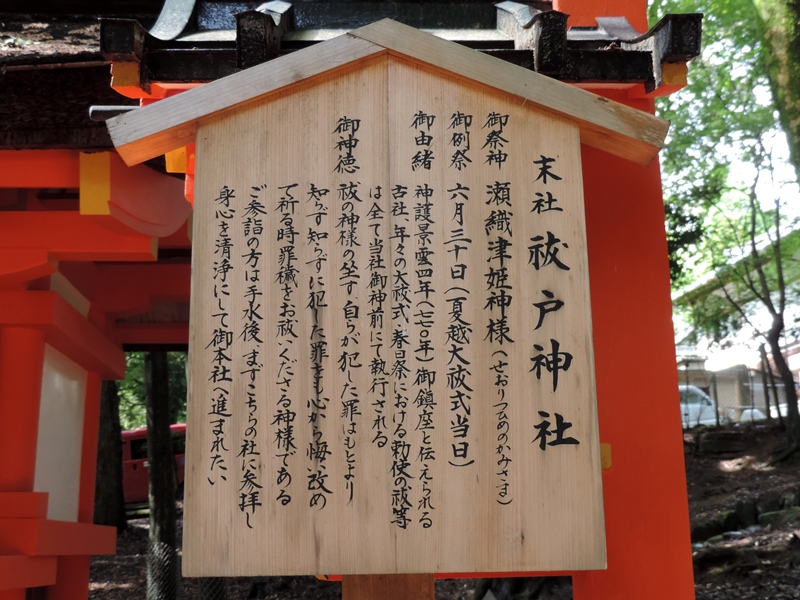 末社 祓戸神社
御祭神 瀬織津姫神様（せおりつひめのかみさま）
御例祭 六月三十日（夏越大祓式当日）
御由緒 神護景雲四年（七七〇年）御鎮座と伝えられる
古社、年々の大祓式・春日祭における勅使の祓等
は全て当社御神前にて執行される
御神徳 祓の神様の坐す、自らが犯した罪はもとより
知らず知らずに犯した罪をも心から悔い改め
て祈る時罪穢をお祓いくださる神様である
ご参詣の方は手水後、まずこちらの社に参拝し
身心を清浄にして御本社へ進まれたい